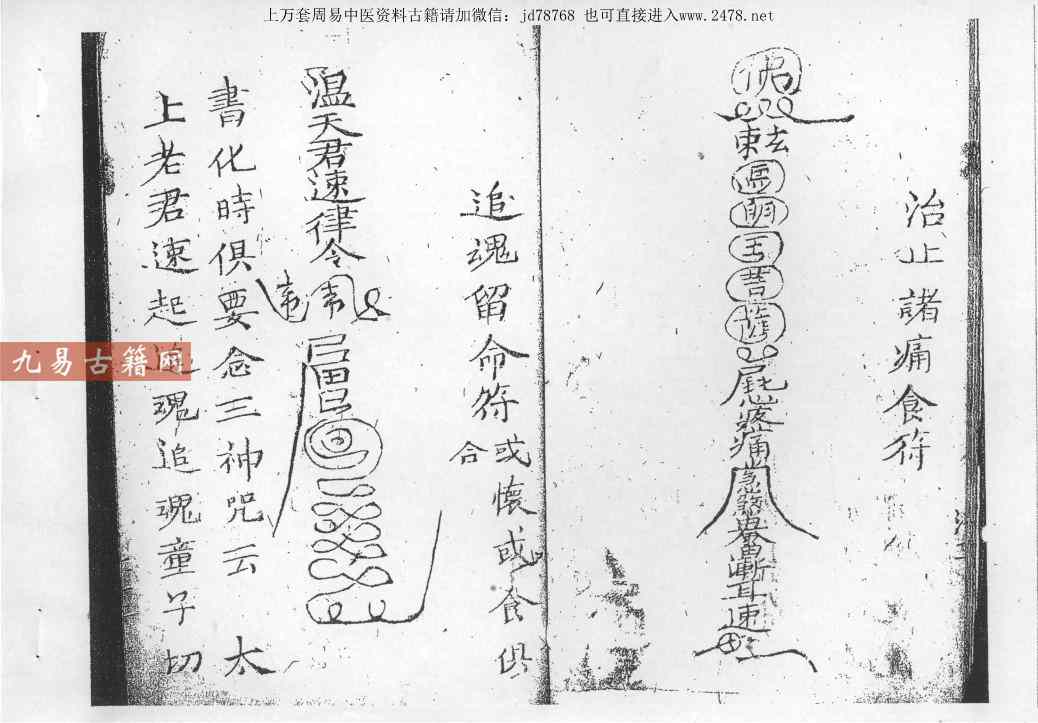 上万套周易中医资料古籍请加微信：jd78768 也可直接进入www.2478.net
治止諸痛食符
佛
敕
明王菩薩
疼痛
漸耳速
追魂留命符 或懷或食俱
合
温天君速律令
書化時俱要念三神咒云 太
上老君速起追魂追魂童子切
九易古籍网